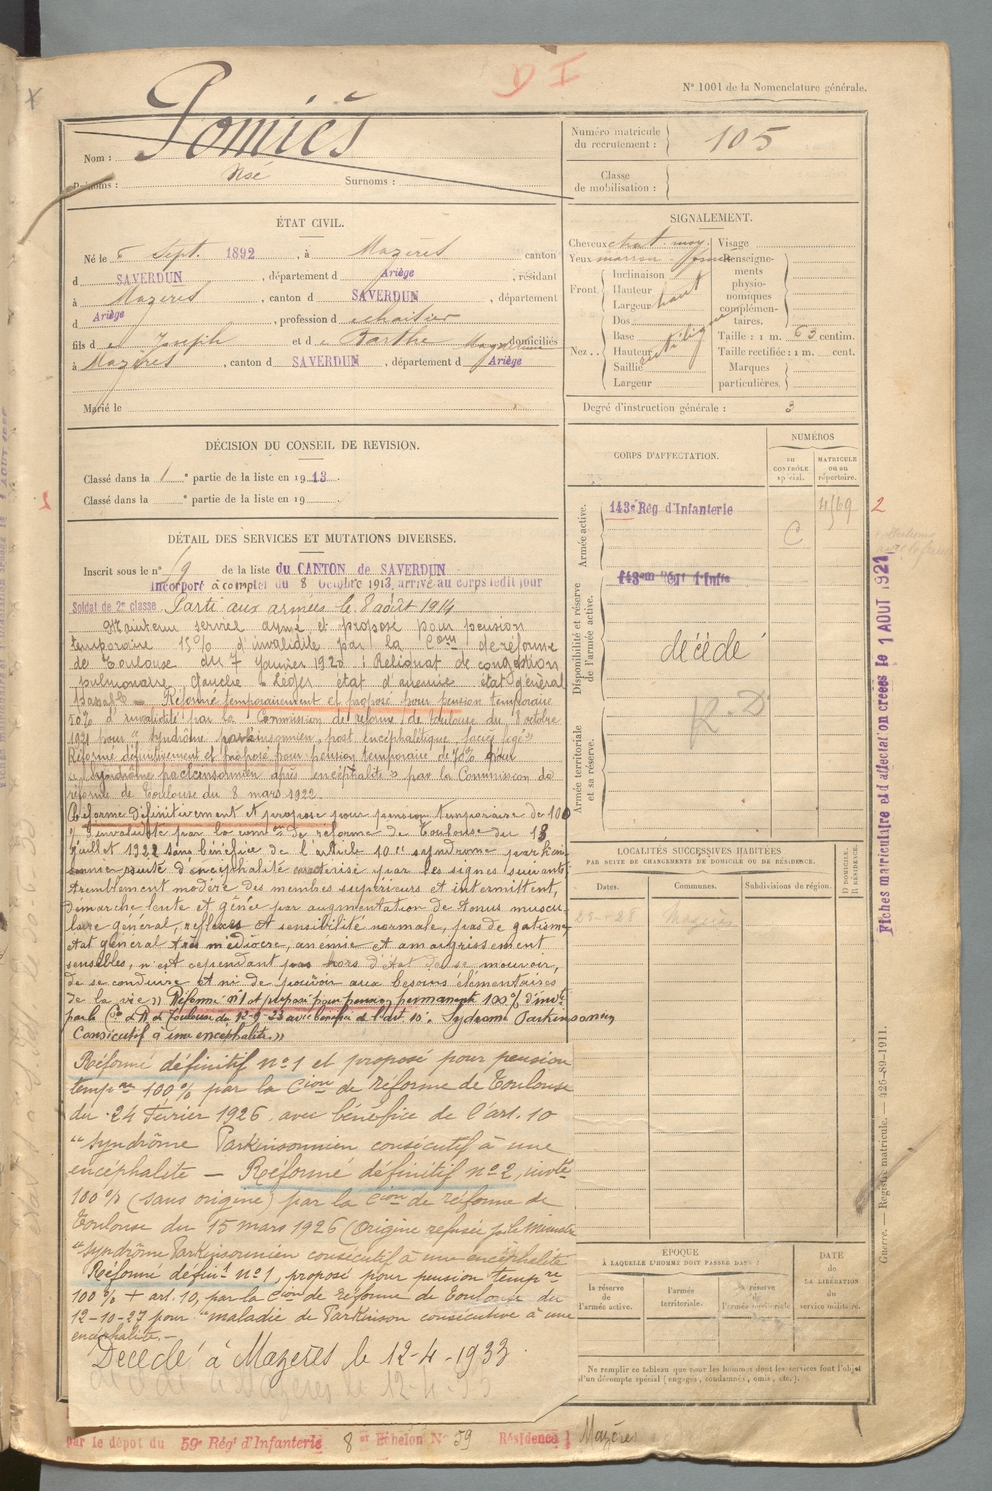 D I
N° 1001 de la Nomenclature générale.
Pomiès
Nom :
Prénoms : Noé Surnoms :
Numéro matricule du recrutement : 105
Classe de mobilisation :
ÉTAT CIVIL.
Né le 5 Sept. 1892, à Mazères canton
d SAVERDUN, département d Ariège, résidant
à Mazères, canton d SAVERDUN, département
d Ariège, profession d chaisier
fils d e Joseph et d e Barthe domiciliés
à Mazères, canton d SAVERDUN, département d Ariège
Marié le
SIGNALEMENT.
Cheveux chat. moy. Visage
Yeux marron
Front. Inclinaison
Hauteur
Largeur haut
Nez.. Dos
Base
Hauteur
Saillie
Largeur
Renseignements physionomiques complémentaires.
Taille : 1 m. 63 centim.
Taille rectifiée : 1 m. cent.
Marques particulières.
Degré d'instruction générale : 3
DÉCISION DU CONSEIL DE REVISION.
Classé dans la 1e partie de la liste en 1913.
Classé dans la e partie de la liste en 19
CORPS D'AFFECTATION.
NUMÉROS
AU CONTRÔLE spécial.
MATRICULE ou au répertoire.
Armée active.
143e Rég d'Infanterie
C
4569
Disponibilité et réserve de l'armée active.
143em Régt d'Infie
décédé
R.D
Armée territoriale et sa réserve.
DÉTAIL DES SERVICES ET MUTATIONS DIVERSES.
Inscrit sous le n° 19 de la liste du CANTON de SAVERDUN
Incorporé à compter du 8 Octobre 1913, arrivé au corps ledit jour
Soldat de 2e classe Parti aux armées le 8 août 1914
Maintenu service armé et proposé pour pension
temporaire 15% d'invalidité par la Cion de réforme
de Toulouse du 7 Janvier 1920 : Reliquat de congestion
pulmonaire gauche Léger état d'anémie état général
passable – Réformé temporairement et proposé pour pension temporaire
50% d'invalidité par la Commission de réforme de Toulouse du 1 octobre
1921 pour "Syndrôme parkinsonnien, post encéphalitique, faciès figé"
Réformé définitivement et proposé pour pension temporaire de 70% pour
"Syndrôme parkinsonnien après encéphalite" par la Commission de
réforme de Toulouse du 8 mars 1922.
Réformé définitivement et proposé pour pension temporaire de 100
% d'invalidité par la comon de réforme de Toulouse du 18
Juillet 1922 sans bénéfice de l'article 10 "syndrome parkin
sonnien suite d'encéphalite caractérisé par les signes suivants
tremblement modéré des membres supérieurs et intermittent,
démarche lente et gênée par augmentation de tonus muscu
laire général, réflexes et sensibilité normale, pas de gatisme
état général très médiocre, anémie et amaigrissement
sensibles, n'est cependant pas hors d'état de se mouvoir,
de se conduire et ni de pouvoir aux besoins élémentaires
de la vie" Réformé n°1 et proposé pour pension permanente 100% d'invté
par la Con de R de Toulouse du 12-9-23 avec bénéfice de l'art. 10. Sydrome Parkinsonien
Consécutif à une encéphalite."
Réformé définitif n°1 et proposé pour pension
tempre 100% par la Cion de réforme de Toulouse
du 24 Février 1926 avec bénéfice de l'art. 10
"Syndrôme Parkinsonnien consécutif à une
encéphalite – Réformé définitif n°2, invté
100% (sans origine) par la Cion de réforme de
Toulouse du 15 mars 1926 (Origine refusée p. le Ministre
"Syndrôme Parkinsonnien consécutif à une encéphalite
Réformé définit n°1, proposé pour pension tempre
100% + art. 10, par la Cion de réforme de Toulouse du
12-10-27 pour "maladie de Parkinson consécutive à une
encéphalite.–
Décédé à Mazères le 12-4-1933.
LOCALITÉS SUCCESSIVES HABITÉES
PAR SUITE DE CHANGEMENTS DE DOMICILE OU DE RÉSIDENCE.
Dates. Communes. Subdivisions de région. D DOMICILE. R RÉSIDENCE.
Mazères
ÉPOQUE
À LAQUELLE L'HOMME DOIT PASSER DANS :
la réserve de l'armée active.
l'armée territoriale.
la réserve de l'armée territoriale
DATE de LA LIBÉRATION du service militaire.
Ne remplir ce tableau que pour les hommes dont les services font l'objet
d'un décompte spécial (engagés, condamnés, omis, etc.).
par le dépôt du 59e Régt d'Infanterie 8 er Echelon N° 59 Résidence Mazères
2
Fiches matriculaire et d'affectation créées le 1 AOUT 1921
Guerre. — Registre matricule. — 426-89-1911.